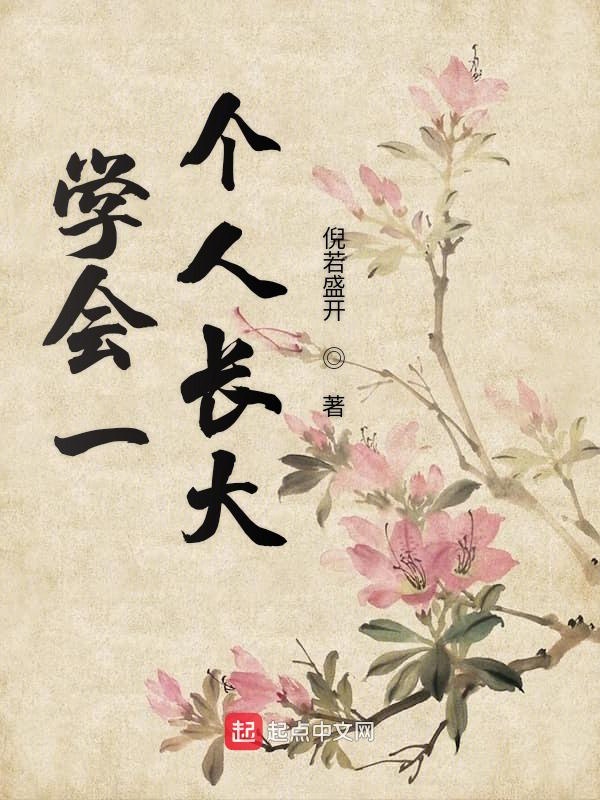 学会一
个人长大
倪若盛开 ◎ 著
起 起点中文网